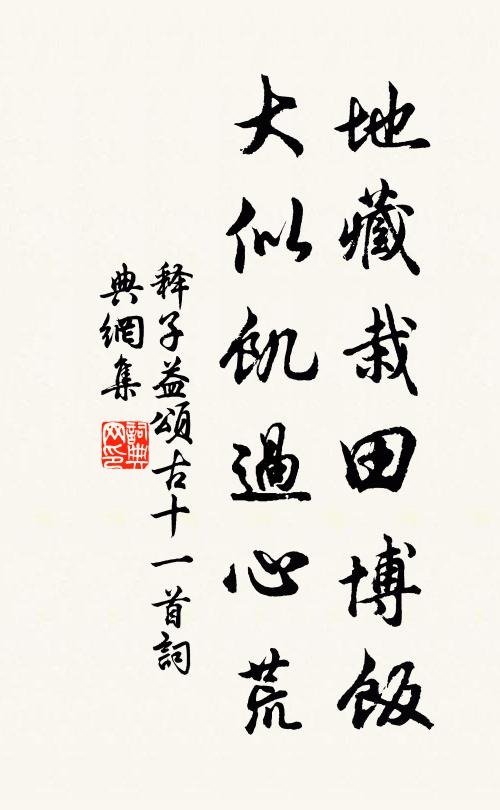 地藏栽田博飯
大似飢過心荒
释子益頌古十一首詞
典網集
詞典
网印